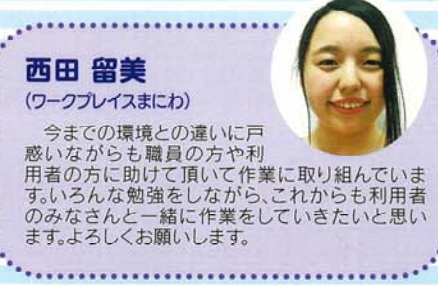 西田 留美
(ワークプレイスまにわ)
　今までの環境との違いに戸
惑いながらも職員の方や利
用者の方に助けて頂いて作業に取り組んでいま
す。いろんな勉強をしながら、これからも利用者
のみなさんと一緒に作業をしていきたいと思い
ます。よろしくお願いします。